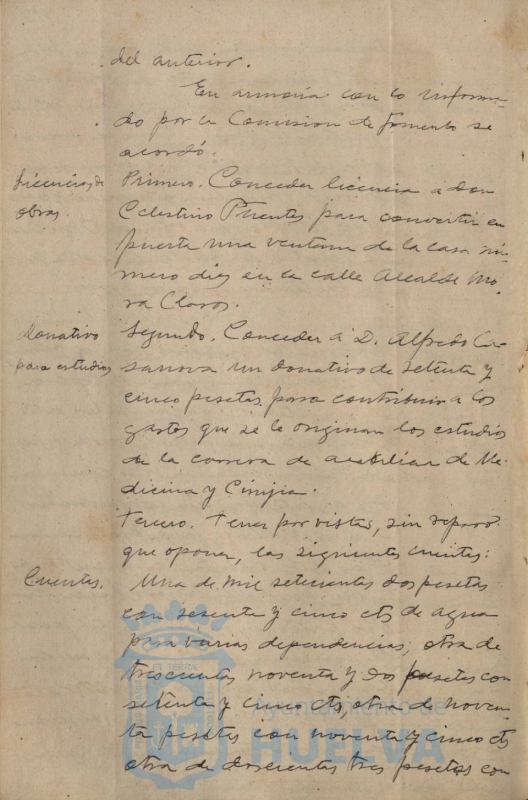 del anterior.
En armonía con lo informa-
do por la Comision de fomento se
acordó.
Licencias de
obras.
Primero. Conceder licencia a don
Celestino Puentes para convertir en
puerta una ventana de la casa nú-
mero diez en la calle Alcalde Mo-
ra Claros.
Donativo
para estudios
Segundo. Conceder á D. Alfredo Ca-
sanova un donativo de setenta y
cinco pesetas para contribuir a los
gastos que se le originan los estudios
de la carrera de auxiliar de Me-
dicina y Cirujia.
Tercero. Tener por vistas, sin reparo
que oponer, las siguientes cuentas:
Cuentas.
Una de mil setecientas dos pesetas
con sesenta y cinco cts de agua
para varias dependencias; otra de
trescientas noventa y dos pesetas con
setenta y cinco cts, otra de noven-
ta pesetas con noventa y cinco cts
otra de doscientas tres pesetas con
Ayuntamiento de
HUELVA